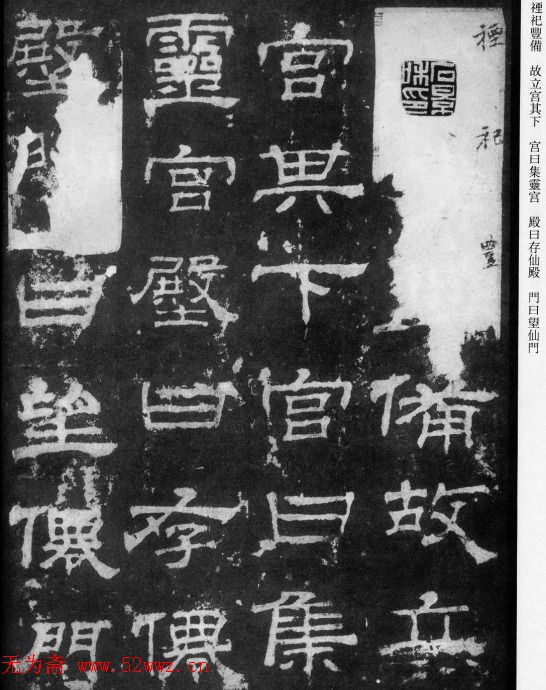 禋祀豐備　故立宮其下　宮曰集靈宮　殿曰存仙殿　門曰望仙門
禋祀豐備故立
宮其下宮曰集
靈宮殿曰存僊
殿門曰望僊門
无为斋 www.52wwz.cn